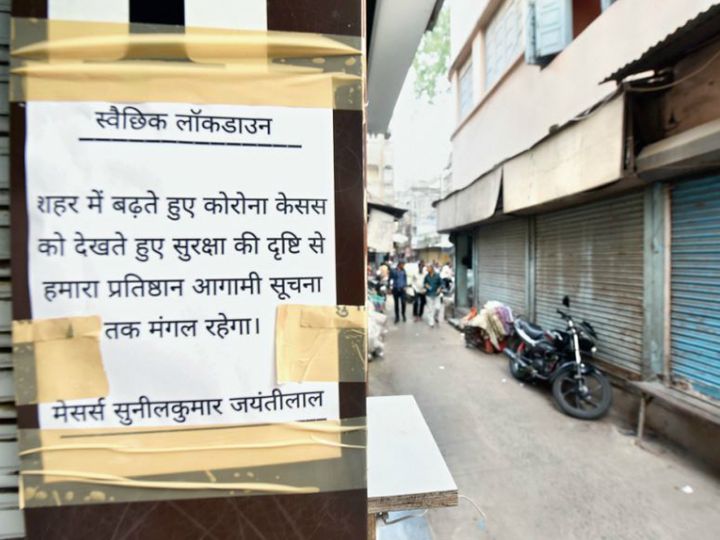 स्वैछिक लॉकडाउन
शहर में बढ़ते हुए कोरोना केसस
को देखते हुए सुरक्षा की दृष्टि से
हमारा प्रतिष्ठान आगामी सूचना
तक मंगल रहेगा।
मेसर्स सुनीलकुमार जयंतीलाल